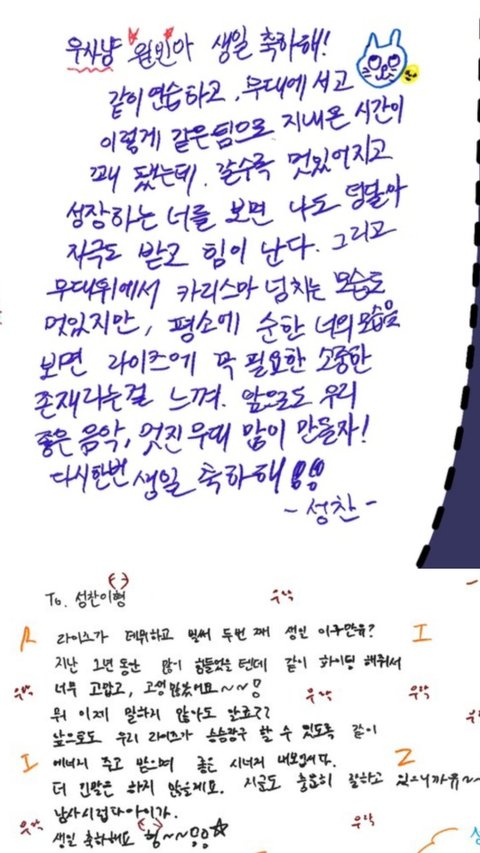 우사냥 원빈아 생일 축하해!
같이 연습하고, 무대에 서고
이렇게 같은 팀으로 지내온 시간이
꽤 됐는데, 갈수록 멋있어지고
성장하는 너를 보면 나도 덩달아
자극도 받고 힘이 난다. 그리고
무대위에서 카리스마 넘치는 모습도
멋있지만, 평소에 순한 너의 모습을
보면 라이즈에 꼭 필요한 소중한
존재라는걸 느껴. 앞으로도 우리
좋은 음악, 멋진 무대 많이 만들자!
다시한번 생일 축하해!!
- 성찬 -
To. 성찬이형
우낙
R 라이즈가 데뷔하고 벌써 두번 째 생일 이구만유? I
지난 1년 동안 많이 힘들었을텐데 같이 화이팅 해줘서
우낙 너무 고맙고, 고생 많았어요~~ 우낙 우낙
뭐 이제 말하지 않아도 알죠??
앞으로도 우리 라이즈가 승승장구 할 수 있도록 같이
I 에너지 주고 받으며 좋은 시너지 내보입시다. Z
더 긴말은 하지 않을게요. 지금도 충분히 잘하고 있으니까유~
우낙 남사시럽다아이가. 우낙
생일 축하해요 형~~